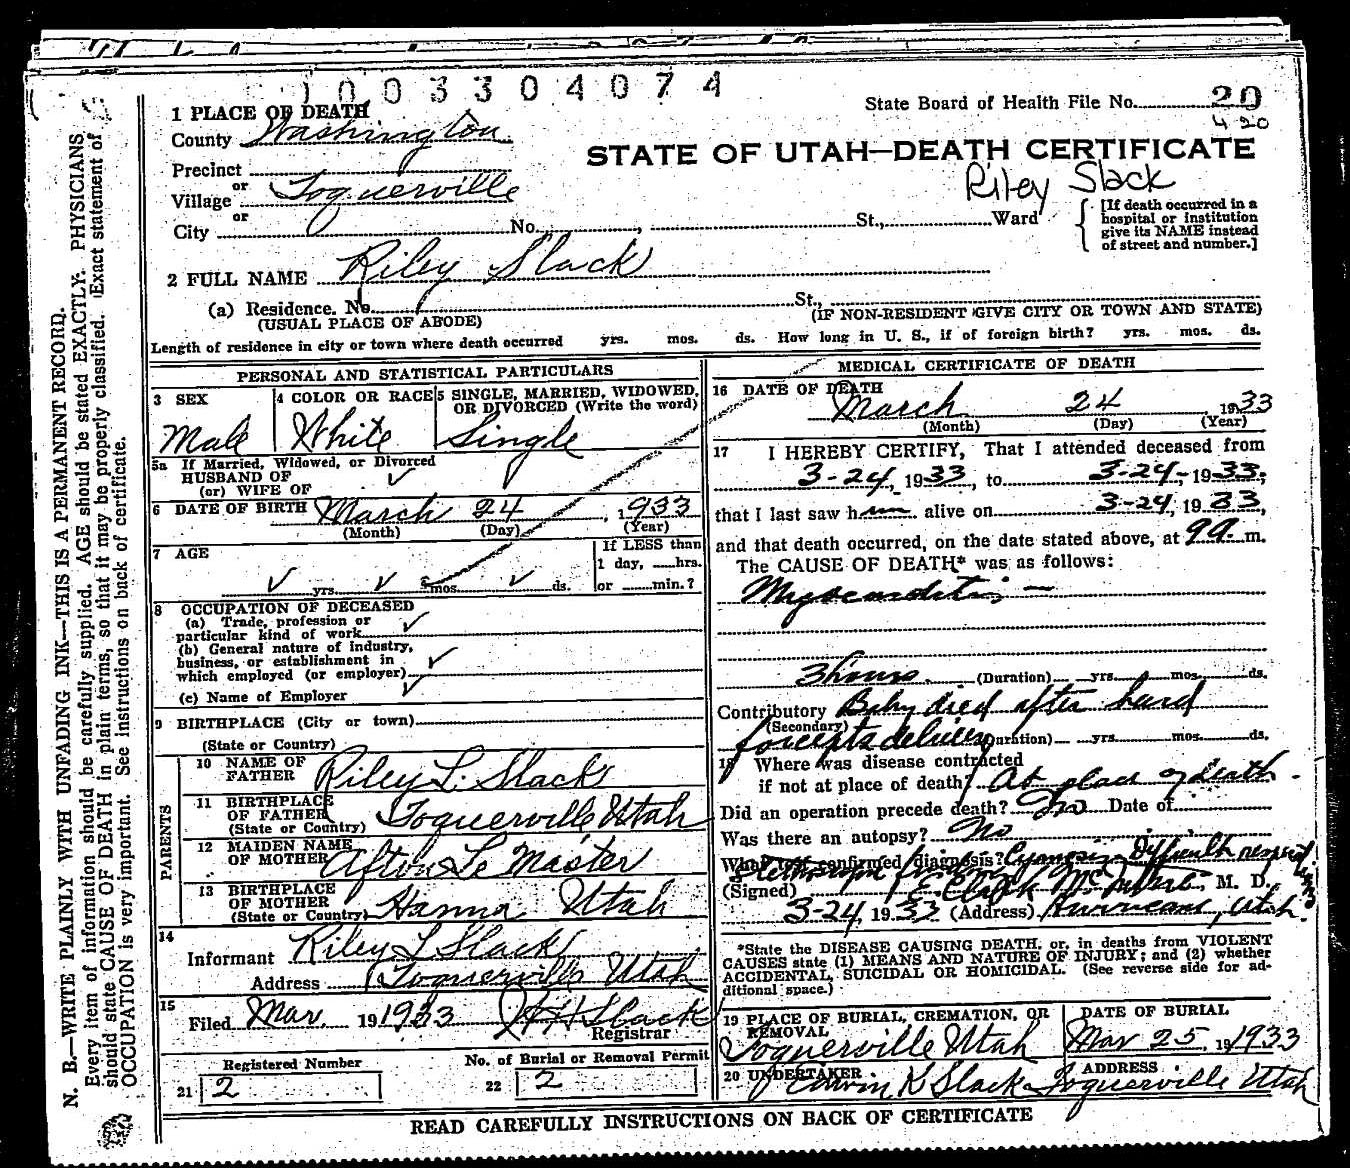 1003304074
State Board of Health File No. 20
420
STATE OF UTAH—DEATH CERTIFICATE
Riley Slack
1 PLACE OF DEATH
County Washington
Precinct
or
Village Toquerville
or
City No. , St., Ward
[If death occurred in a
hospital or institution
give its NAME instead
of street and number.]
2 FULL NAME Riley Slack
(a) Residence. No. St.,
(USUAL PLACE OF ABODE) (IF NON-RESIDENT GIVE CITY OR TOWN AND STATE)
Length of residence in city or town where death occurred yrs. mos. ds. How long in U. S., if of foreign birth? yrs. mos. ds.
PERSONAL AND STATISTICAL PARTICULARS
3 SEX 4 COLOR OR RACE 5 SINGLE, MARRIED, WIDOWED,
OR DIVORCED (Write the word)
Male White Single
5a If Married, Widowed, or Divorced
HUSBAND OF
(or) WIFE OF
6 DATE OF BIRTH March 24, 1933
(Month) (Day) (Year)
7 AGE If LESS than
1 day, hrs.
yrs. mos. ds. or min.?
8 OCCUPATION OF DECEASED
(a) Trade, profession or
particular kind of work
(b) General nature of industry,
business, or establishment in
which employed (or employer)
(c) Name of Employer
9 BIRTHPLACE (City or town)
(State or Country)
PARENTS
10 NAME OF
FATHER Riley L. Slack
11 BIRTHPLACE
OF FATHER
(State or Country) Toquerville Utah
12 MAIDEN NAME
OF MOTHER Afton Le Master
13 BIRTHPLACE
OF MOTHER
(State or Country) Hanna Utah
14
Informant Riley L Slack
Address Toquerville Utah
15
Filed Mar. 19 1933 H Slack
Registrar
Registered Number No. of Burial or Removal Permit
21 2 22 2
MEDICAL CERTIFICATE OF DEATH
16 DATE OF DEATH
March 24, 1933
(Month) (Day) (Year)
17 I HEREBY CERTIFY, That I attended deceased from
3-24, 1933, to 3-24-, 1933,
that I last saw him alive on 3-24, 1933,
and that death occurred, on the date stated above, at 9 a. m.
The CAUSE OF DEATH* was as follows:
Myocarditis —
3 hours. (Duration) yrs. mos. ds.
Contributory Baby died after hard
(Secondary)
forceps delivery (Duration) yrs. mos. ds.
18 Where was disease contracted
if not at place of death? At place of death.
Did an operation precede death? No Date of
Was there an autopsy? No
What test confirmed diagnosis? Cyanosis Difficult
(Signed) Clark McIntire, M. D.
3-24, 1933 (Address) Hurricane, Utah.
*State the DISEASE CAUSING DEATH, or, in deaths from VIOLENT
CAUSES state (1) MEANS AND NATURE OF INJURY; and (2) whether
ACCIDENTAL, SUICIDAL OR HOMICIDAL. (See reverse side for ad-
ditional space.)
19 PLACE OF BURIAL, CREMATION, OR
REMOVAL
Toquerville Utah
DATE OF BURIAL
Mar 25, 19 1933
20 UNDERTAKER ADDRESS
Edwin K Slack Toquerville Utah
READ CAREFULLY INSTRUCTIONS ON BACK OF CERTIFICATE
N. B.—WRITE PLAINLY WITH UNFADING INK—THIS IS A PERMANENT RECORD.
Every item of information should be carefully supplied. AGE should be stated EXACTLY. PHYSICIANS
should state CAUSE OF DEATH in plain terms, so that it may be properly classified. Exact statement of
OCCUPATION is very important. See instructions on back of certificate.